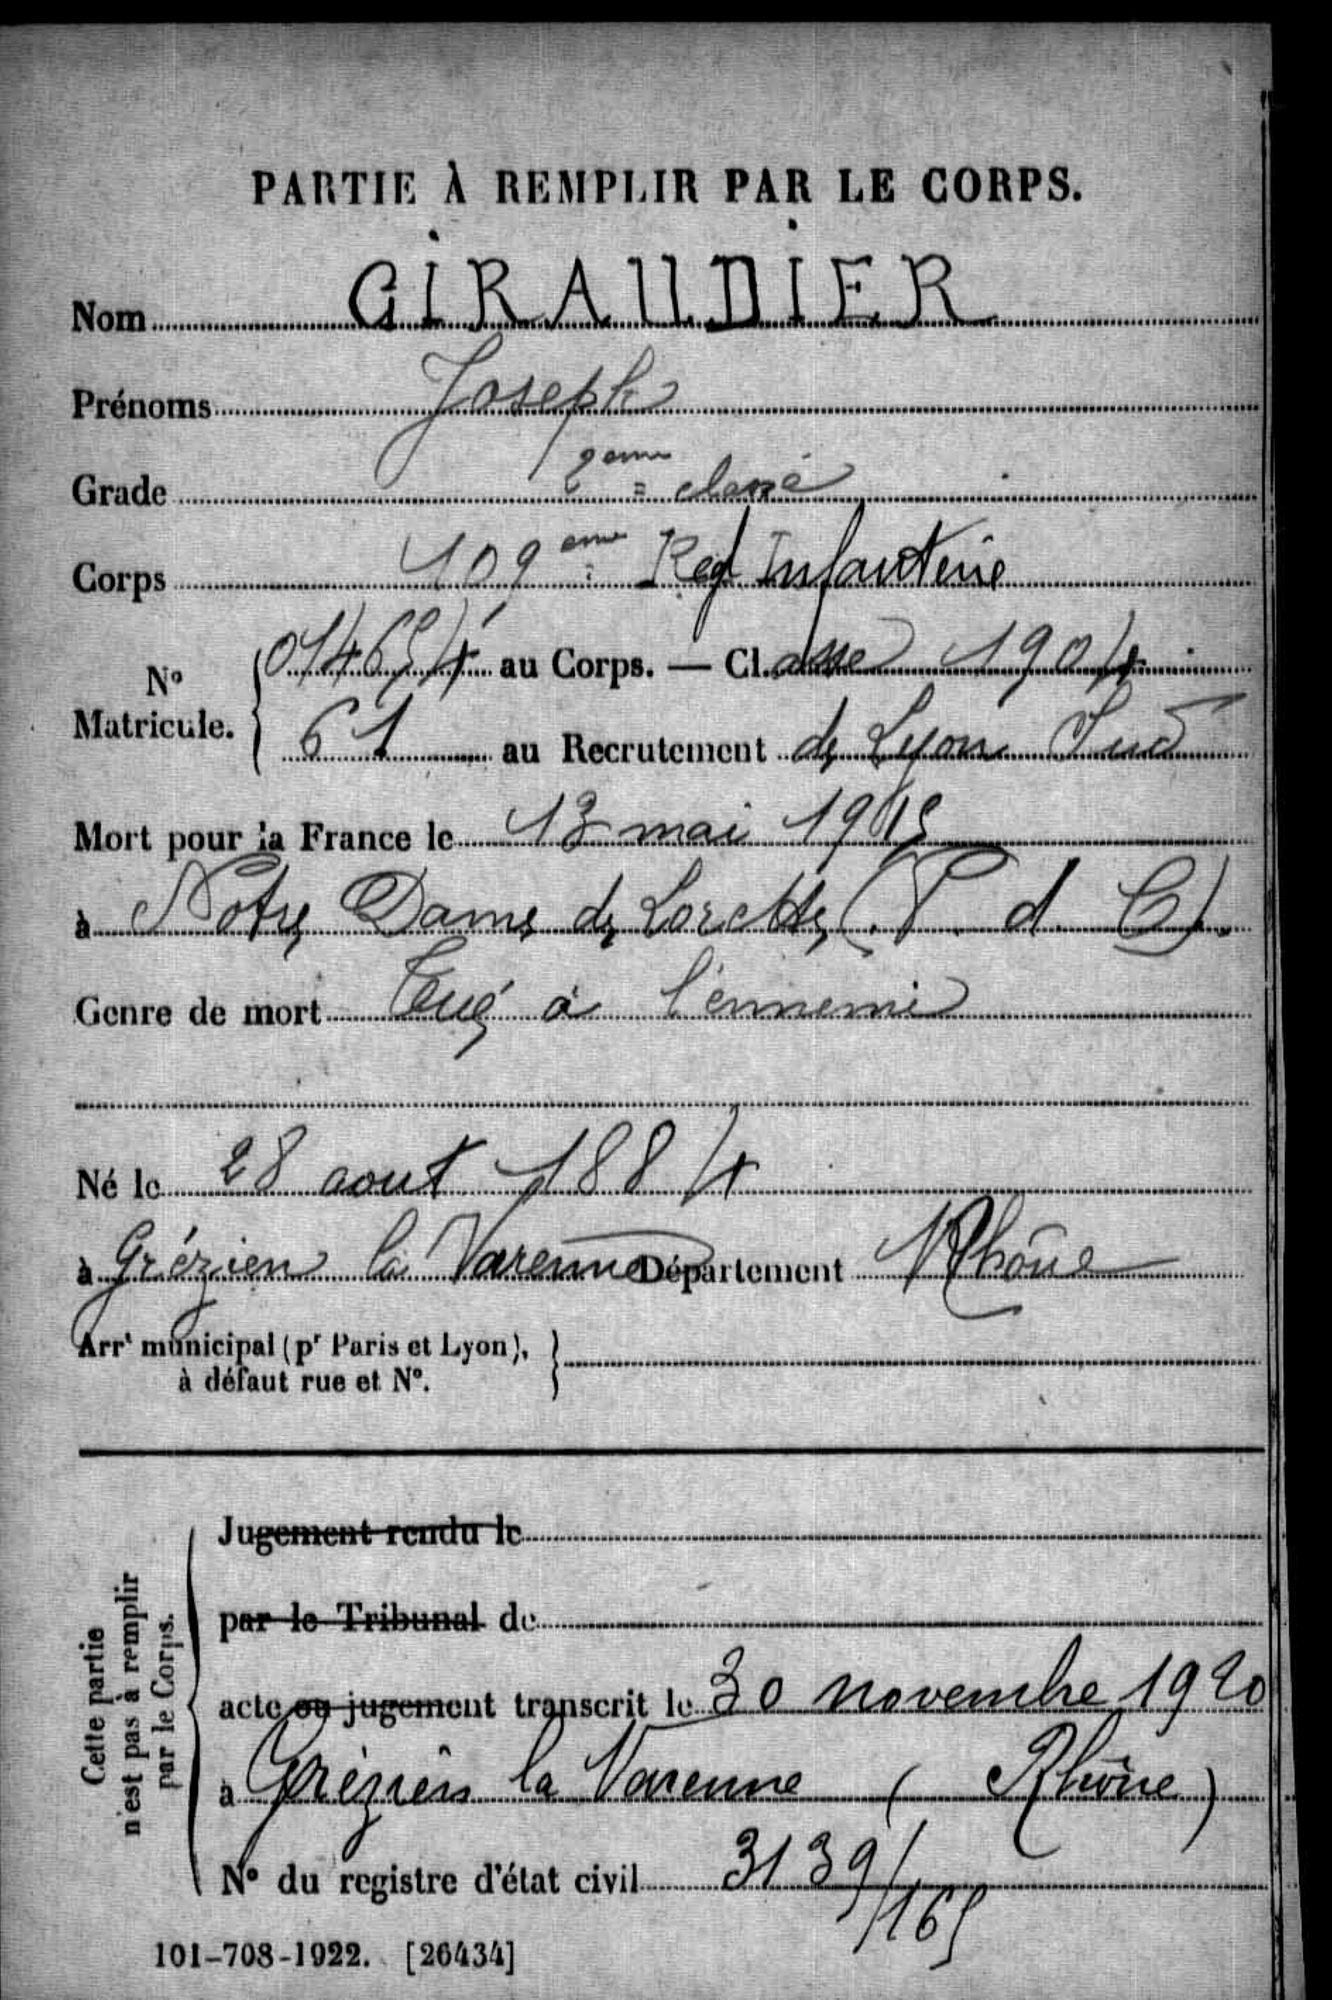 PARTIE À REMPLIR PAR LE CORPS.
Nom GIRAUDIER
Prénoms Joseph
Grade 2eme classe
Corps 109eme Regt Infanterie
No Matricule. 014654 au Corps. — Cl. asse 1904
61 au Recrutement de Lyon Sud
Mort pour la France le 13 mai 1915
à Notre Dame de Lorette (P. d. C).
Genre de mort Tué à l'ennemi
Né le 28 aout 1884
à Grézieu la Varenne Département Rhône
Arrt municipal (pr Paris et Lyon),
à défaut rue et No.
Cette partie
n'est pas à remplir
par le Corps.
Jugement rendu le
par le Tribunal de
acte ou jugement transcrit le 30 novembre 1920
à Grézieu la Varenne (Rhône)
No du registre d'état civil 3139/165
101-708-1922. [26434]